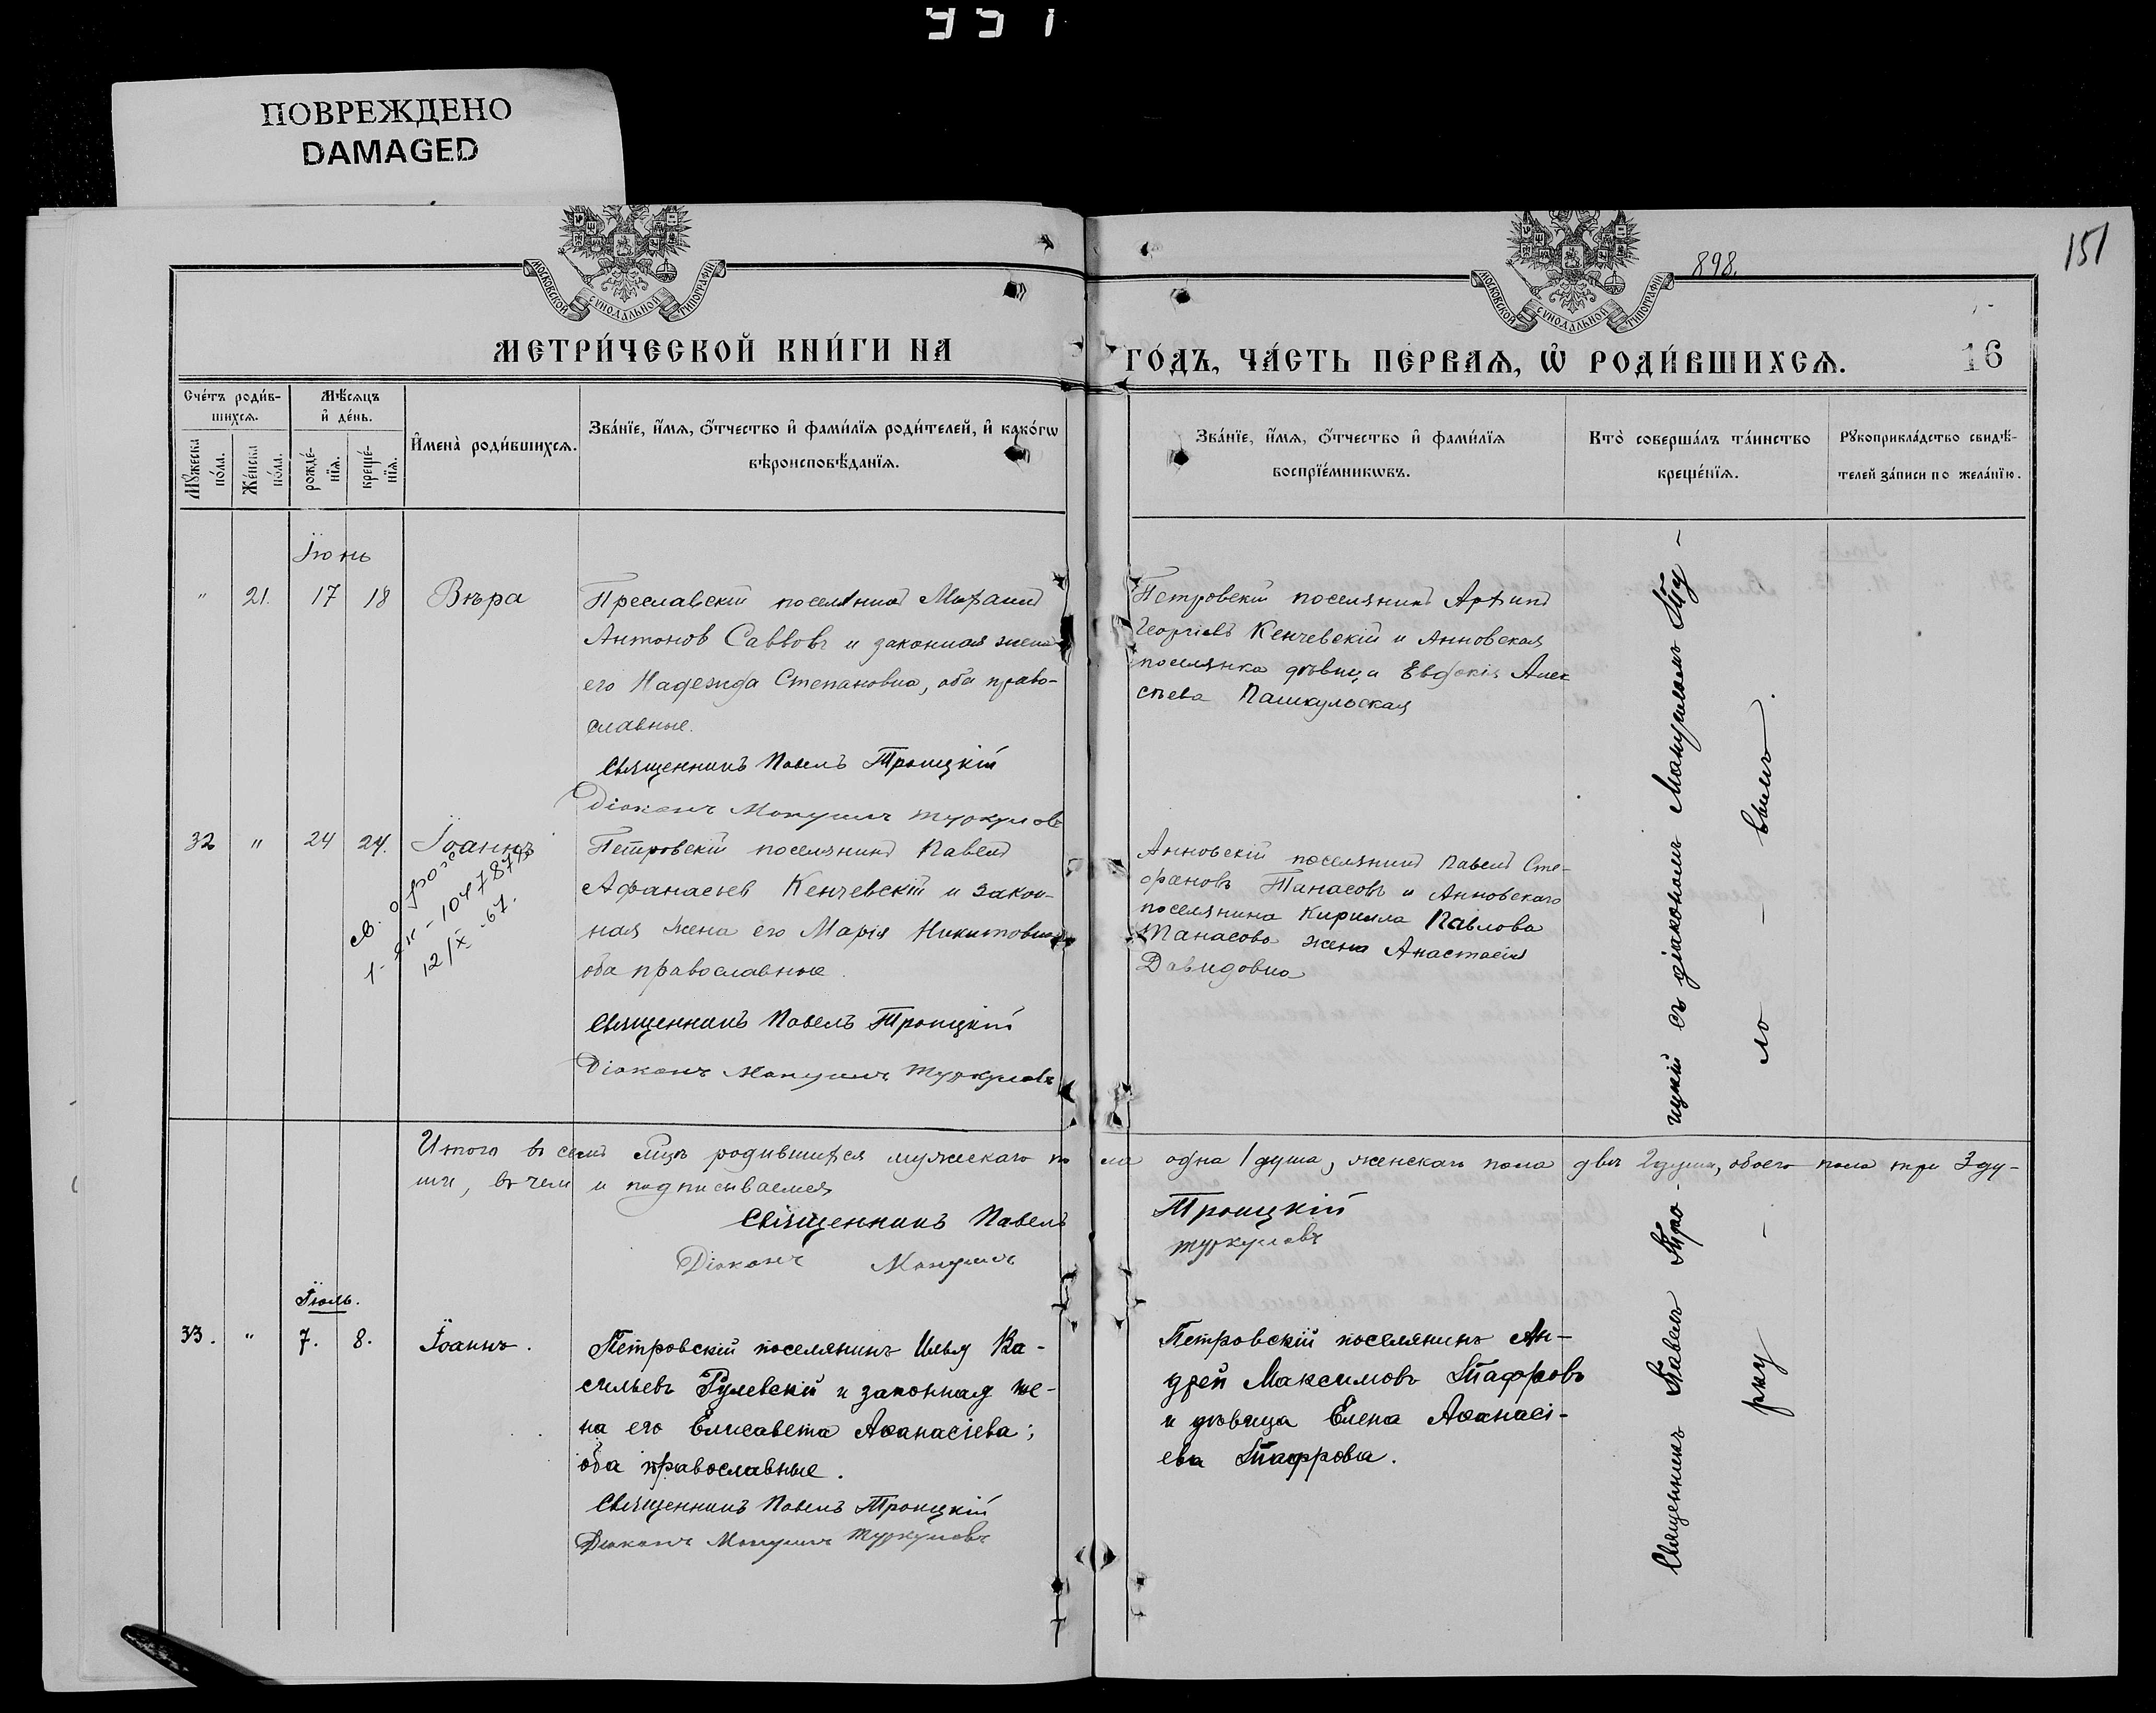 951
ПОВРЕЖДЕНО
DAMAGED
151
898.
МОСКОВСКОЙ СѴНОДАЛЬНОЙ ТИПОГРАФІИ
МОСКОВСКОЙ СѴНОДАЛЬНОЙ ТИПОГРАФІИ
МЕТРИ́ЧЕСКОЙ КНИ́ГИ НА
ГО́ДЪ, ЧА́СТЬ ПЕ́РВАѦ, Ѡ РОДИ́ВШИХСѦ.
16
Сче́тъ роди́в-
шихсѧ.
Мꙋ́жеска
по́ла.
Же́нска
по́ла.
Мѣ́сѧцъ
и҆ де́нь.
рожде́-
нїѧ.
креще́-
нїѧ.
И҆мена̀ роди́вшихсѧ.
Зва́нїе, и҆́мѧ, ѻ҆́тчество и҆ фами́лїѧ роди́телей, и҆ како́гѡ
вѣроисповѣ́данїѧ.
Зва́нїе, и҆́мѧ, ѻ҆́тчество и҆ фами́лїѧ
воспрїе́мникѡвъ.
Кто̀ соверша́лъ та́инство
креще́нїѧ.
Рꙋкоприкла́дство свидѣ́-
телей за́писи по жела́нїю.
Іюнь
" 21. 17 18 Вѣра
Преславскій поселянинъ
Антонов Саввовъ и законная жена
его Надежда Степановна, оба право-
славные.
Священникъ Павелъ Троицкій
Діаконъ Мануилъ Туркуловъ
Петровскій поселянинъ Архипъ
Георгіевъ Кенчевскій и Анновская
поселянка дѣвица Евдокія Алек
сѣева Пашкульская
32 " 24 24. Іоаннъ
св. о рож
12/X-67.
Петровскій поселянинъ Павелъ
Афанасьев Кенчевскій и закон-
ная жена его Марія Никитовна
оба православные.
Священникъ Павелъ Троицкій
Діаконъ Мануилъ Туркуловъ
Анновскій поселянинъ Павелъ Сте-
фановъ Танасовъ и Анновскаго
поселянина Кирилла Павлова
Танасова жена Анастасія
Давидовна
Итого въ семъ родившихся мужскаго по ла одна 1 душа, женскаго пола двѣ 2 души, обоего пола три 3 ду-
ши, въ чем и подписываемся
Священникъ Павелъ Троицкій
Діаконъ Мануилъ Туркуловъ
Іюль.
33. " 7. 8. Іоаннъ.
Петровскій поселянинъ Илья Ва-
сильевъ Гулевскій и законная же-
на его Елисавета Аѳанасіева;
оба православные.
Священникъ Павелъ Троицкій
Діаконъ Мануилъ Туркуловъ
Петровскій поселянинъ Ан-
дрей Максимовъ
и дѣвица Елена Аѳанасі-
ева
Священникъ Павелъ Тро- ицкій съ діакономъ Мануиломъ Ту-
рку - ло - вымъ.